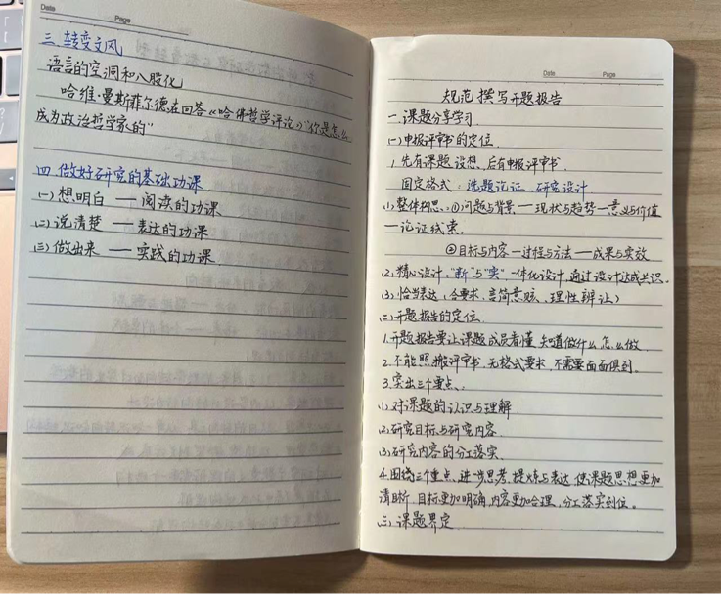 Date
Page
三.转变文风
语言的空洞和八股化
哈维·曼斯菲尔德在回答《哈佛哲学评论》"你是怎么
成为政治哲学家的"
四.做好研究的基础功课
(一)想明白——阅读的功课
(二)说清楚——表达的功课
(三)做出来——实践的功课
Date
Page
规范撰写开题报告
一.课题分享学习
(一)申报评审书的定位
1.先有课题设想、后有申报评审书.
固定格式：选题论证 研究设计
(1)整体构思:①问题与背景——现状与趋势—意义与价值
—论证线索.
②目标与内容—过程与方法——成果与实效
2.精心设计."新"与"实"一体化设计,通过设计达成共识.
(3)恰当表达(合要求,言简意赅、理性辨让)
(二)开题报告的定位.
1.开题报告要让课题成员看懂,知道做什么,怎么做.
2.不能照搬评审书,无格式要求,不需要面面俱到.
3.突出三个重点.
(1)对课题的认识与理解
(2)研究目标与研究内容.
(3)研究内容的分工落实.
4.围绕三个重点,进一步思考、提炼与表达,使课题思想更加
清晰,目标更加明确,内容更加合理,分工落实到位。
(三)课题界定